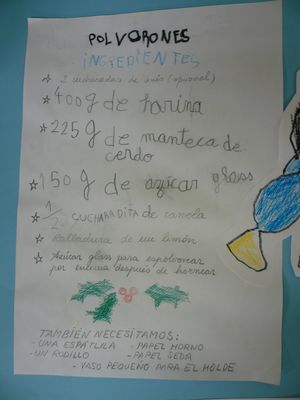 POLVORONES
INGREDIENTES
2 cucharadas de anís (opcional)
400g de harina
225g de manteca de
cerdo
150g de azúcar glass
1/2 CUCHARADITA de canela
Ralladura de un limón
Azúcar glass para espolvorear
por encima después de hornear
TAMBIÉN NECESITAMOS:
-UNA ESPÁTULA - PAPEL HORNO
-UN RODILLO - PAPEL SEDA
- VASO PEQUEÑO PARA EL MOLDE